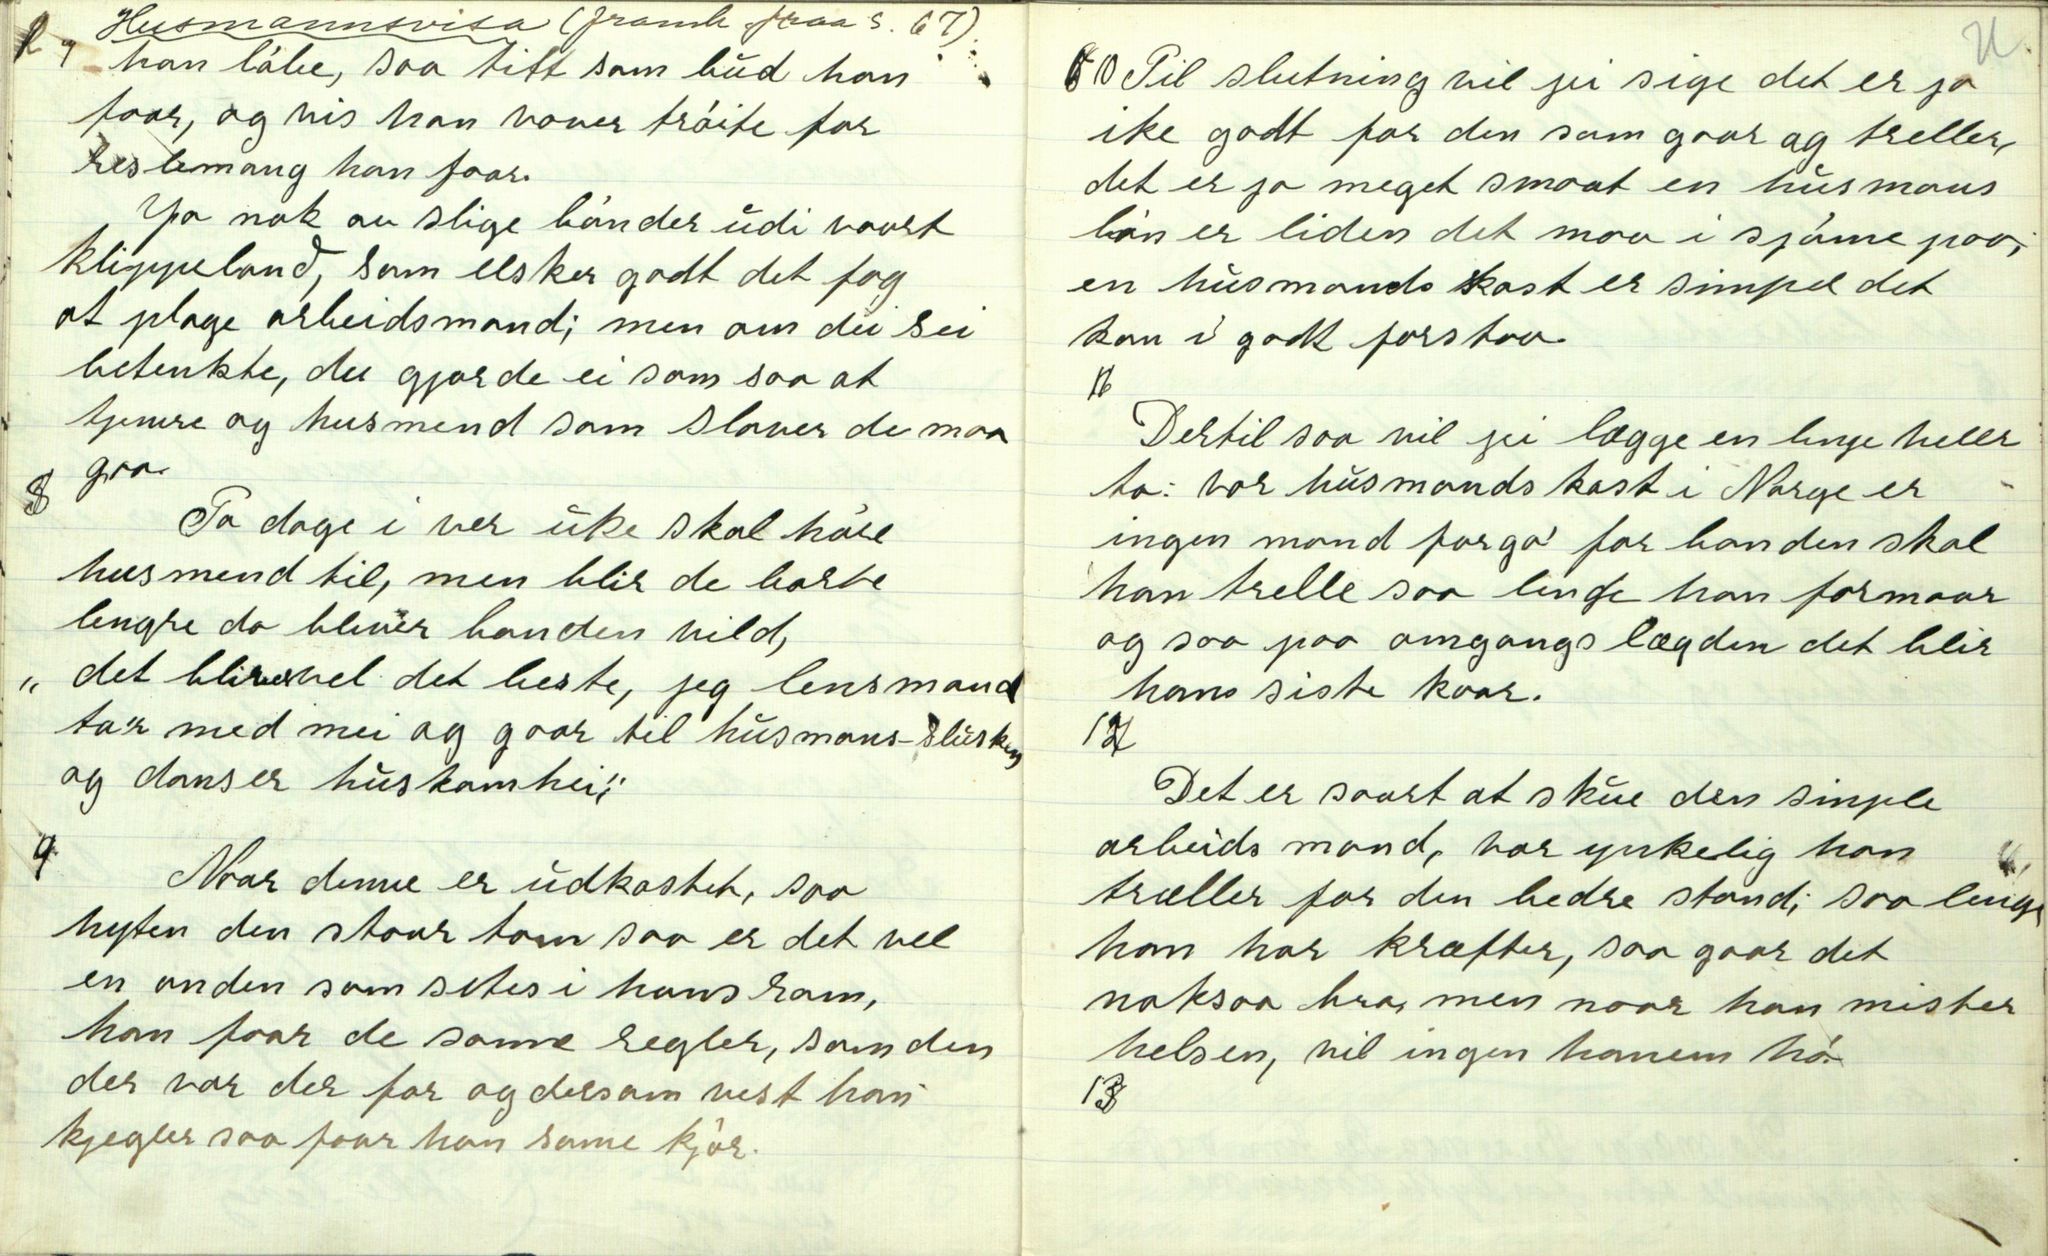 Husmannsvisa (framh fraa s. 67)
han låbe, saa titt som bud han
faar, og vis han vover tröite for
reslemang han faar.
Ja nok av slige bónder ŭdi vaart
klippeland, som elsker godt det fag
at plage arbeidsmand; men om dei sei
betenkte, dei gjorde ei som saa at
tjenere og husmend som slaver de maa
gaa.
8
To dage i ver ŭke skal hóre
husmend til, men blir de borte
lengre da bliver bonden vild,
„ det blir vel det beste, jeg lensmand
tar med mei og gaar til hŭsmans-slŭsken
og danser hŭskomhei;"
9
Naar denne er ŭdkastet, saa
hyten den staar tom saa er det vel
en anden som setes i hans rom,
han faar de same regler, som den
der var der for og dersom vest han
kjegler saa faar han same kjór.
U
10 Til slutning vil jei sige det er ja
ike godt for den som gaar og treller,
det er ja meget smaat en hŭsmans
lón er liden det maa i sjóne paa;
en hŭsmands kost er simpel det
kan i godt forstaa.
11
Dertil saa vil jei lægge en linje heller
to: vor hŭsmands kost i Norge er
ingen mand forgo' for bonden skal
han trelle saa lenge han formaar
og saa paa omgangslægden det blir
hans siste kaar.
12
Det er saart at skŭe den simple
arbeids mand, vor ynkelig han
træller for den bedre stand; saa lenge
han har kræfter, saa gaar det
noksaa bra, men naar han mister
helsen, vil ingen hanem ha.
13